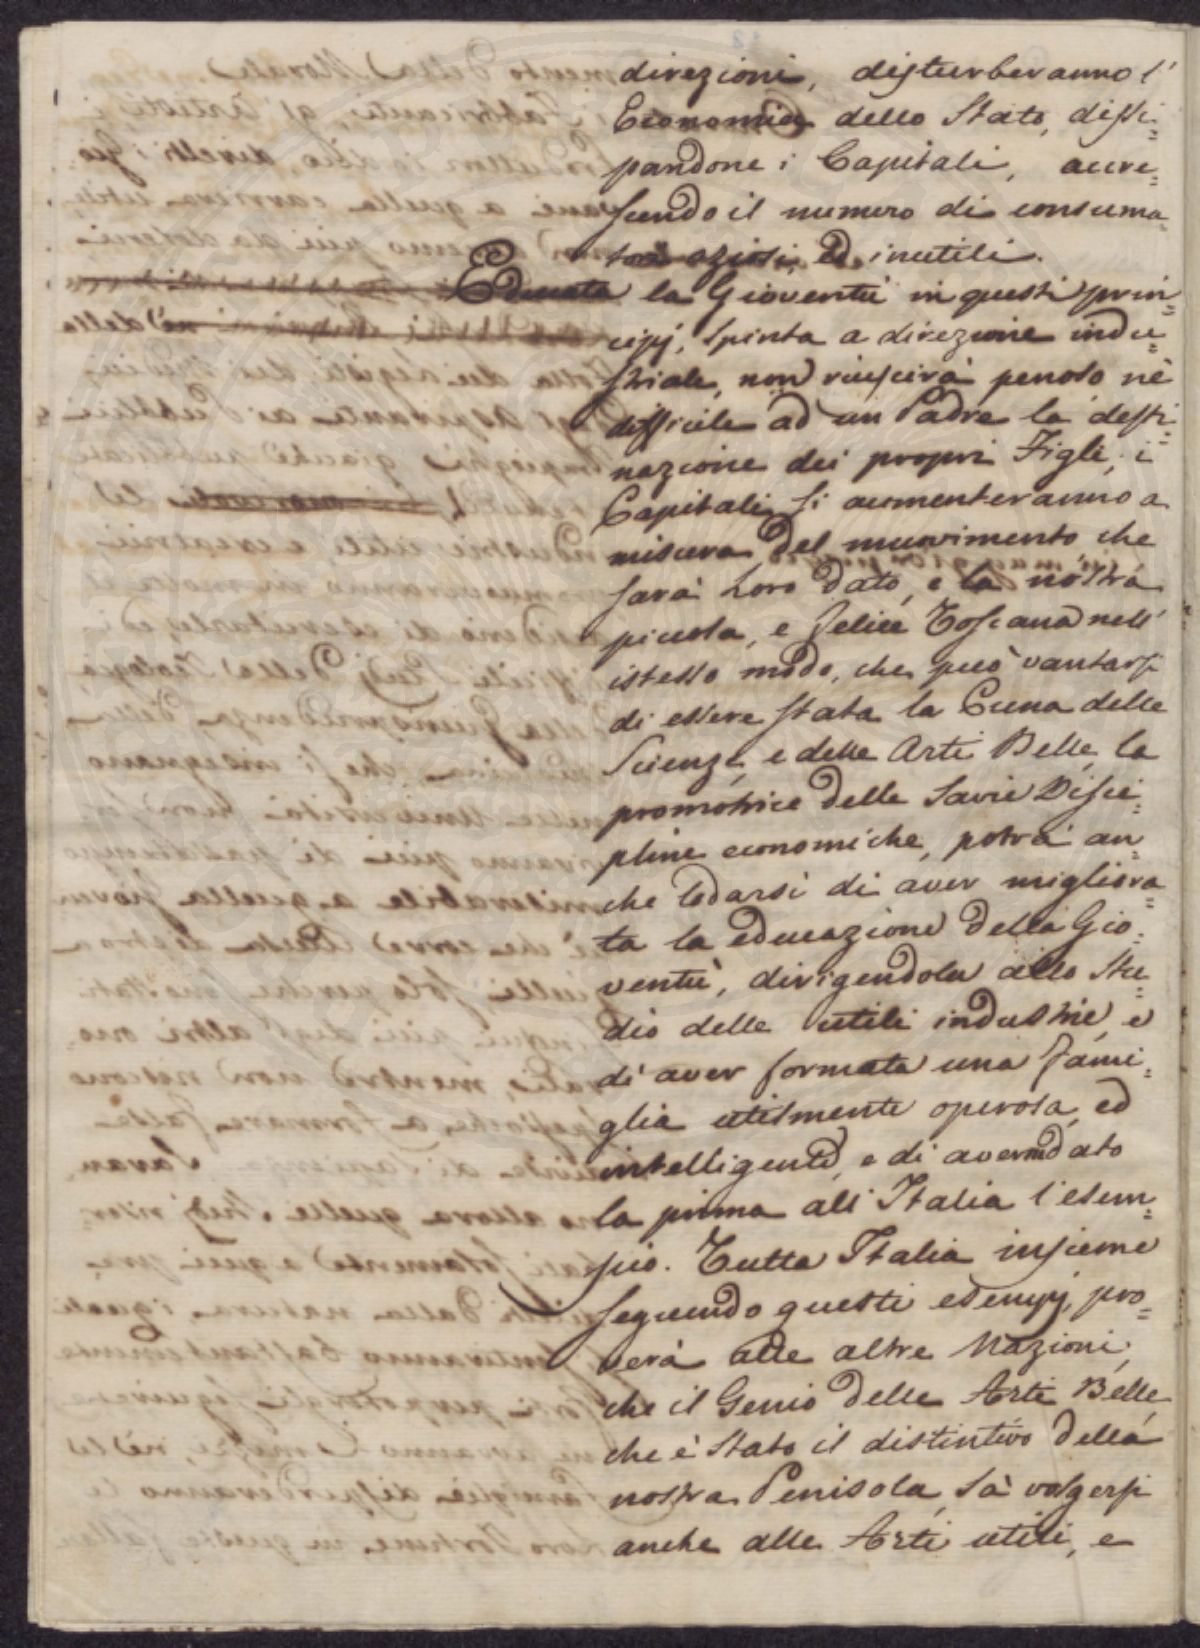 direzioni, disturberanno l'
Economia dello Stato, dissi=
pandone i Capitali, accre=
scendo il numero di consuma=
tori oziosi, ed inutili.
Educata la Gioventù in questi prin=
cipj, spinta a direzione indu=
striale, non riuscirà penoso nè
difficile ad un Padre la desti=
nazione dei propri Figli, i
Capitali si aumenteranno a
misura del muovimento che
sarà Loro dato, e la nostra
piccola, e felice Toscana nell'
istesso modo, che può vantarsi
di essere stata la Cuna delle
Scienze, e delle Arti Belle, la
promotrice delle Savie Disci=
pline economiche, potrà an=
che lodarsi di aver migliora=
ta la educazione della Gio=
ventù, dirigendola allo Stu=
dio delle utili industrie, e
di aver formata una Fami=
glia utilmente operosa, ed
intelligente, e di aver dato
la prima all'Italia l'esem=
pio. Tutta Italia insieme
seguendo questi esempj, pro=
verà alle altre Nazioni,
che il Genio delle Arti Belle,
che è stato il distintivo della
nostra Penisola, sà volgersi
anche alle Arti utili, e